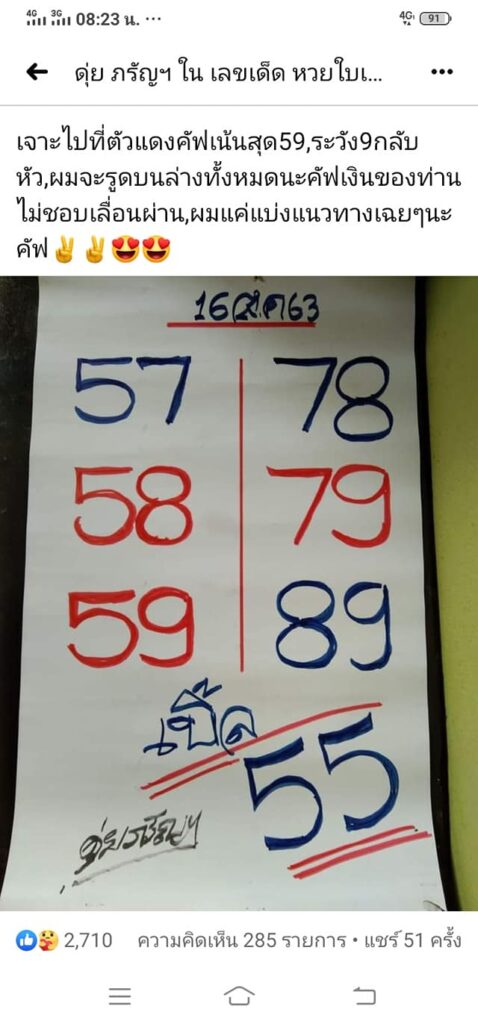 4G 3G 08:23 น. ··· 4G 91
ดุ่ย ภรัญฯ ใน เลขเด็ด หวยใบเ...
เจาะไปที่ตัวแดงคัฟเน้นสุด59,ระวัง9กลับ
หัว,ผมจะรูดบนล่างทั้งหมดนะคัฟเงินของท่าน
ไม่ชอบเลื่อนผ่าน,ผมแค่แบ่งแนวทางเฉยๆนะ
คัฟ✌✌😍😍
16 ส.ค 63
57 78
58 79
59 89
เบิ้ล
55
ดุ่ยภรัญฯ
2,710 ความคิดเห็น 285 รายการ • แชร์ 51 ครั้ง